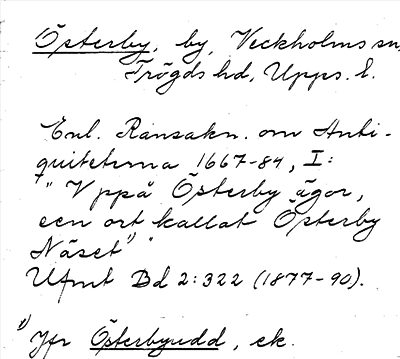 Österby, by, Veckholms sn,
Trögds hd, Upps. l.
Enl. Ransakn. om Anti-
quiteterna 1667-84, I:
"Vppå Österby ägor,
een ort kallat Österby
Näset¹⁾"
Ufmt Bd 2:322 (1877-90).
¹⁾ Jfr Österbyudd, ek.